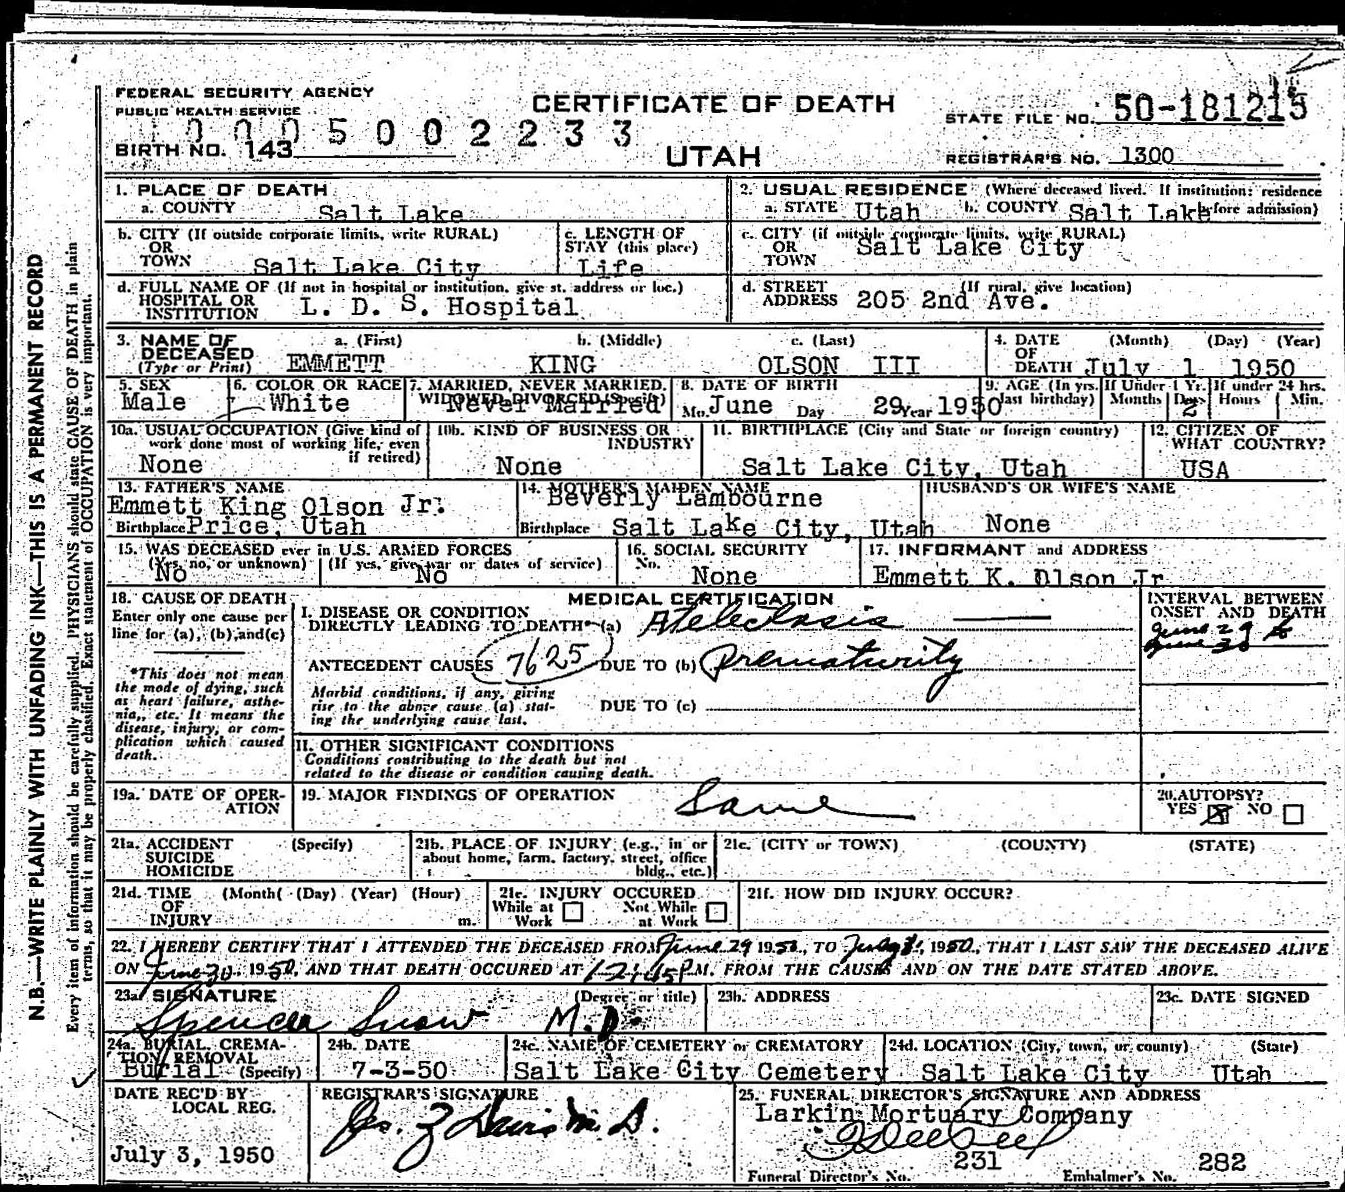 FEDERAL SECURITY AGENCY
PUBLIC HEALTH SERVICE
CERTIFICATE OF DEATH
STATE FILE NO. 50-181215
0005002233
BIRTH NO. 143
UTAH
REGISTRAR'S NO. 1300
1. PLACE OF DEATH
a. COUNTY Salt Lake
2. USUAL RESIDENCE (Where deceased lived. If institution: residence before admission)
a. STATE Utah b. COUNTY Salt Lake
b. CITY (If outside corporate limits, write RURAL)
OR
TOWN Salt Lake City
c. LENGTH OF
STAY (this place)
Life
c. CITY (if outside corporate limits, write RURAL)
OR Salt Lake City
TOWN
d. FULL NAME OF (If not in hospital or institution, give st. address or loc.)
HOSPITAL OR
INSTITUTION L. D. S. Hospital
d. STREET (If rural, give location)
ADDRESS 205 2nd Ave.
3. NAME OF DECEASED
(Type or Print)
a. (First) b. (Middle) c. (Last)
EMMETT KING OLSON III
4. DATE OF DEATH (Month) (Day) (Year)
July 1 1950
5. SEX
Male
6. COLOR OR RACE
White
7. MARRIED, NEVER MARRIED,
WIDOWED, DIVORCED (Specify)
Never Married
8. DATE OF BIRTH
Mo. June Day 29 Year 1950
9. AGE (In yrs. last birthday)
If Under 1 Yr.
Months Days
2
If under 24 hrs.
Hours Min.
10a. USUAL OCCUPATION (Give kind of
work done most of working life, even
if retired)
None
10b. KIND OF BUSINESS OR
INDUSTRY
None
11. BIRTHPLACE (City and State or foreign country)
Salt Lake City, Utah
12. CITIZEN OF
WHAT COUNTRY?
USA
13. FATHER'S NAME
Emmett King Olson Jr.
Birthplace Price, Utah
14. MOTHER'S MAIDEN NAME
Beverly Lambourne
Birthplace Salt Lake City, Utah
HUSBAND'S OR WIFE'S NAME
None
15. WAS DECEASED ever in U.S. ARMED FORCES
(Yrs. no, or unknown) (If yes, give war or dates of service)
No No
16. SOCIAL SECURITY
No. None
17. INFORMANT and ADDRESS
Emmett K. Olson Jr
18. CAUSE OF DEATH
Enter only one cause per
line for (a), (b), and (c)
*This does not mean
the mode of dying, such
as heart failure, asthe-
nia,, etc. It means the
disease, injury, or com-
plication which caused
death.
MEDICAL CERTIFICATION
I. DISEASE OR CONDITION
DIRECTLY LEADING TO DEATH* (a) Atelectasis
ANTECEDENT CAUSES 7625 DUE TO (b) Prematurity
Morbid conditions, if any, giving
rise to the above cause (a) stat-
ing the underlying cause last.
DUE TO (c)
INTERVAL BETWEEN
ONSET AND DEATH
June 29 to
June 30
II. OTHER SIGNIFICANT CONDITIONS
Conditions contributing to the death but not
related to the disease or condition causing death.
19a. DATE OF OPER-
ATION
19. MAJOR FINDINGS OF OPERATION
Same
20. AUTOPSY?
YES NO
21a. ACCIDENT (Specify)
SUICIDE
HOMICIDE
21b. PLACE OF INJURY (e.g., in or
about home, farm, factory, street, office
bldg., etc.)
21c. (CITY or TOWN) (COUNTY) (STATE)
21d. TIME (Month) (Day) (Year) (Hour)
OF
INJURY m.
21e. INJURY OCCURED
While at Work Not While at Work
21f. HOW DID INJURY OCCUR?
22. I HEREBY CERTIFY THAT I ATTENDED THE DECEASED FROM June 29 1950, TO July 1, 1950, THAT I LAST SAW THE DECEASED ALIVE
ON June 30, 1950, AND THAT DEATH OCCURED AT 12:45 P.M. FROM THE CAUSES AND ON THE DATE STATED ABOVE.
23a. SIGNATURE (Degree or title)
Spencer Snow M.D.
23b. ADDRESS
23c. DATE SIGNED
24a. BURIAL, CREMA-
TION, REMOVAL
Burial (Specify)
24b. DATE
7-3-50
24c. NAME OF CEMETERY or CREMATORY
Salt Lake City Cemetery
24d. LOCATION (City, town, or county) (State)
Salt Lake City Utah
DATE REC'D BY
LOCAL REG.
July 3, 1950
REGISTRAR'S SIGNATURE
25. FUNERAL DIRECTOR'S SIGNATURE AND ADDRESS
Larkin Mortuary Company
231 282
Funeral Director's No. Embalmer's No.
N.B.—WRITE PLAINLY WITH UNFADING INK—THIS IS A PERMANENT RECORD
Every item of information should be carefully supplied. PHYSICIANS should state CAUSE OF DEATH in plain
terms, so that it may be properly classified. Exact statement of OCCUPATION is very important.